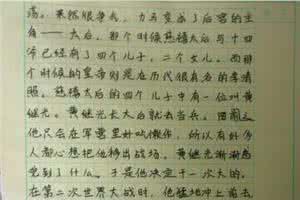 荡。果然很争气,力马变成了后宫的主
角——太后。那个时候慈禧太后与十四
爷已经有了四个儿子,二个女儿。而那
个时候的皇帝则是在历代很有名的李清
照。慈禧太后的四个儿子中有一位叫黄
继光。黄继光长大后就去当兵。因
他只会在军营里好吃懒作,所以有好多
人都心想把他稀出战场。黄继光渐渐感
觉到了什么。于是他决定干一次大的。
在第二次世界大战时,他猛地冲上前去